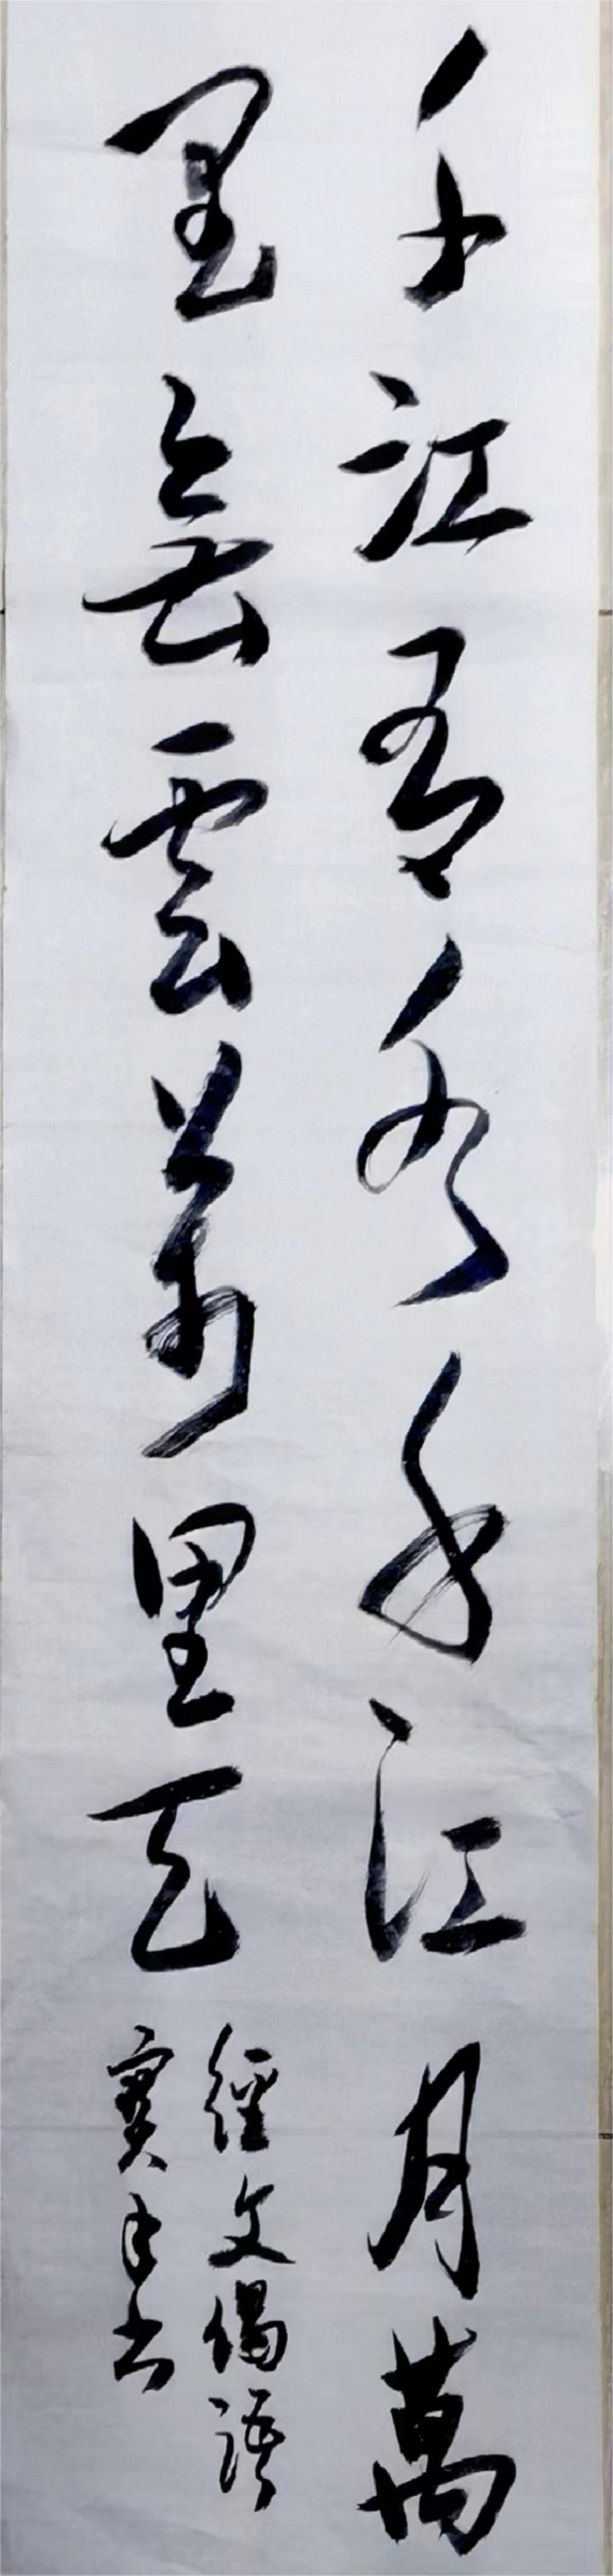 千江有水千江月萬
里無雲萬里天
經文偈語
寶年書